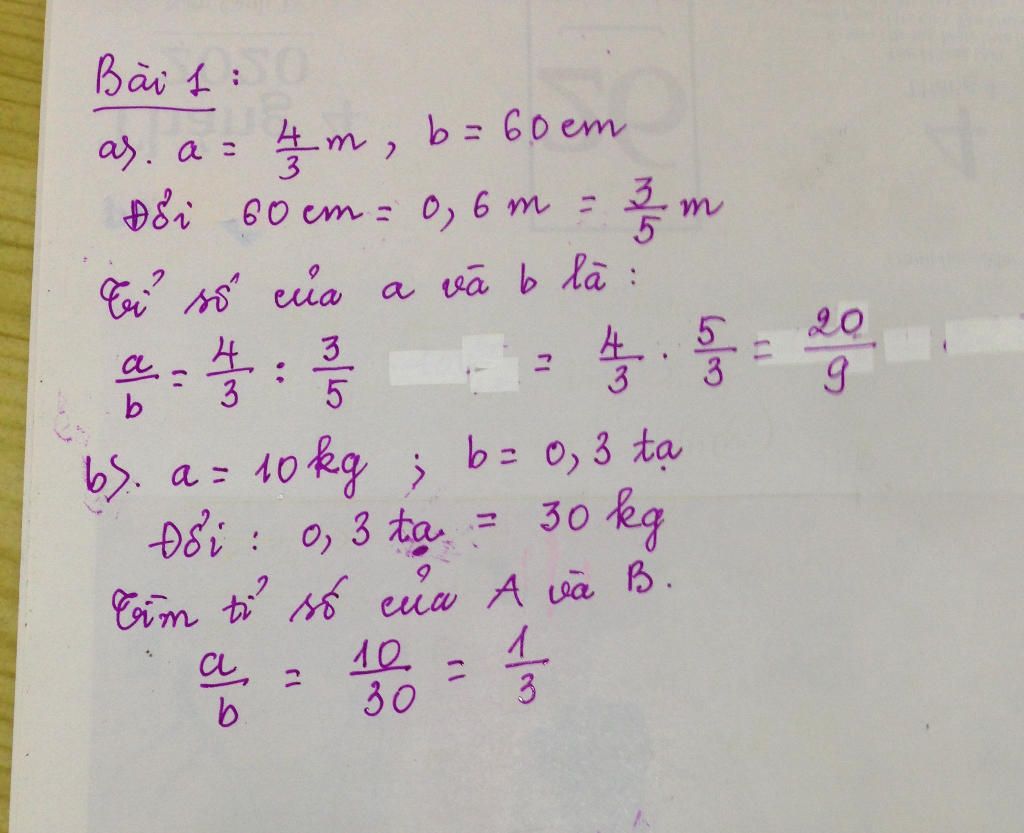 Bài 1 :
a). a = 4/3 m , b = 60 cm
Đổi 60 cm = 0,6 m = 3/5 m
Tỉ số của a và b là :
a/b = 4/3 : 3/5 = 4/3 . 5/3 = 20/9 .
b). a = 10 kg ; b = 0,3 tạ
Đổi : 0,3 tạ = 30 kg
Tìm tỉ số của A và B.
a/b = 10/30 = 1/3